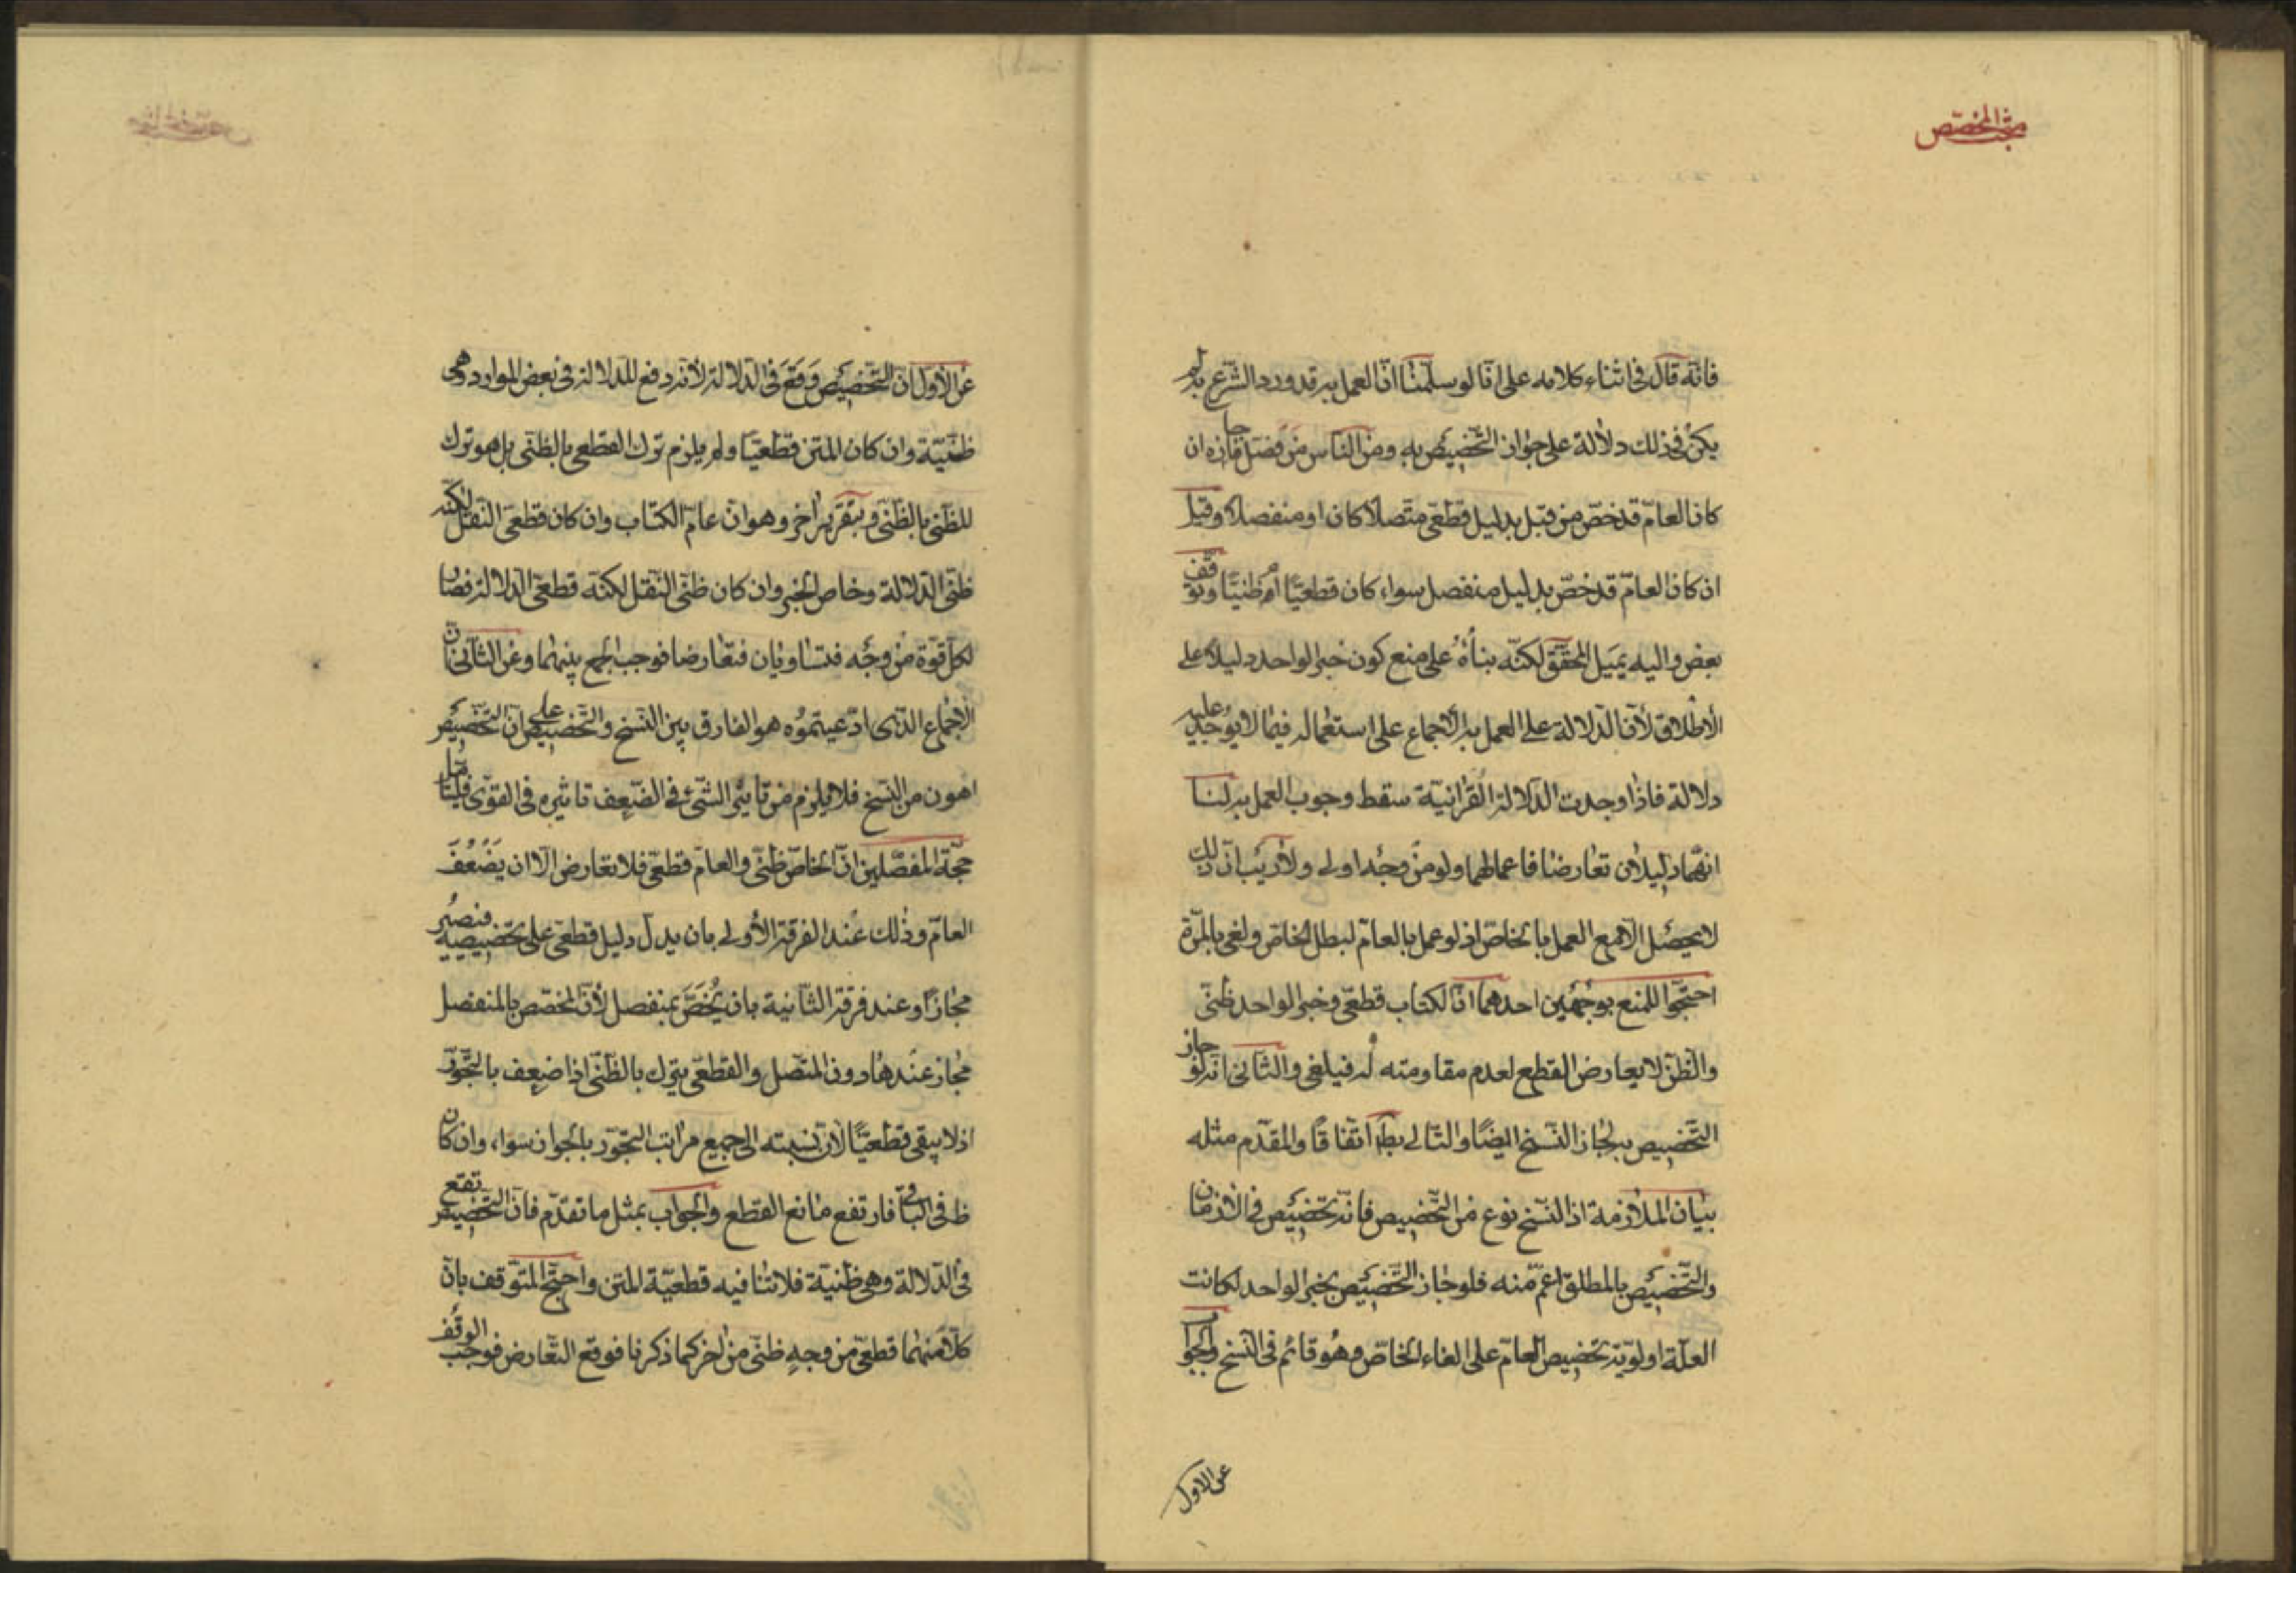 مبحث المخصّص
فانّه قال فى اثناء كلامه على انّا لو سلّمنا انّ العمل به قد ورد الشّرع به لم
يكن فى ذلك دلالة على جواز التّخصيص به ومن النّاس من فصّل فاجازه ان
كان العامّ قد خصّ من قبل بدليل قطعى متّصلا كان او منفصلا وقيل
ان كان العامّ قد خصّ بدليل منفصل سواء كان قطعيّا ام ظنيّا وتوقّف
بعض واليه يميل المحقّق لكنّه بناه على منع كون خبر الواحد دليلا على
الأطلاق لأنّ الدّلالة على العمل به الأجماع على استعماله فيما لا يوجد عليه
دلالة فاذا وجدت الدّلالة القرانيّة سقط وجوب العمل به لنا
انّهما دليلان تعارضا فاعمالهما ولو من وجه اولى ولا ريب انّ ذلك
لا يحصل الّا مع العمل بالخاصّ اذ لو عمل بالعامّ لبطل الخاصّ ولغى بالمرّة
احتجّوا للمنع بوجهين احدهما انّ الكتاب قطعى وخبر الواحد ظنّى
والظّن لا يعارض القطع لعدم مقاومته له فيلغى والثّانى انّه لو جاز
التّخصيص به لجاز النّسخ ايضًا والتّالى بط اتّفاقًا والمقدّم مثله
بيان الملازمة انّ النّسخ نوع من التّخصيص فانّه تخصيص فى الأزمان
والتّخصيص بالمطلق اعمّ منه فلو جاز التّخصيص بخبر الواحد لكانت
العلّة اولويّة تخصيص العامّ على الغاء الخاصّ وهو قائم فى النّسخ والجواب
عن الاول
عن الأوّل انّ التّخصيص وقع فى الدّلالة لأنّه دفع للدّلالة فى بعض الموارد وهى
ظنّيّة وان كان المتن قطعيّا ولم يلزم ترك القطعى بالظنّى بل هو ترك
للظّنى بالظّنى وبتقرير اخر وهو انّ عامّ الكتاب وان كان قطعى النّقل لكنّه
ظنّى الدّلالة وخاص الخبر وان كان ظنّى النّقل لكنّه قطعى الدّلالة فصار
لكلّ قوّة من وجه فتساويان فتعارضا فوجب الجمع بينهما وعن الثّانى انّ
الأجماع الّذى ادّعيتموه هو الفارق بين النّسخ والتّخصيص على انّ التّخصيص
اهون من النّسخ فلا يلزم من تاثير الشّىء فى الضّعيف تاثيره فى القوّى فليتامّل
حجّة المفصّلين انّ الخاصّ ظنّى والعامّ قطعى فلا تعارض الّا ان يضعف
العامّ وذلك عند الفرقة الأولى بان يدلّ دليل قطعى على تخصيصه فنصير
مجازًا وعند فرقة الثّانية بان يُخصّ بمنفصل لأنّ المخصّص بالمنفصل
مجاز عندها دون المتّصل والقطعى يترك بالظّنّى اذا ضعف بالتّجوّز
اذ لا يبقى قطعيّا لأن نسبته الى جميع مراتب التّجوّز بالجواز سواء وان كان
ظ فى الباقى فارتفع مانع القطع والجواب بمثل ما تقدّم فانّ التّخصيص تقع
فى الدّلالة وهى ظنّية فلا تنافيه قطعيّة المتن واحتجّ المتوقّف بانّ
كلّا منهما قطعى من وجه ظنّى من اخر كما ذكرنا فوقع التّعارض فوجب الوقف